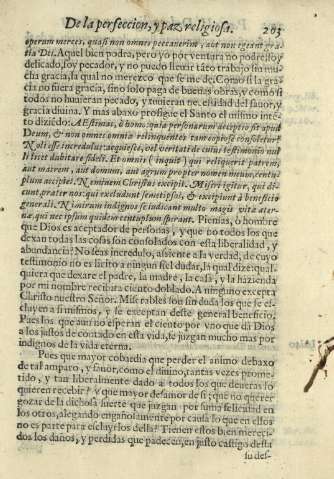 De la perfeccion, y paz religiosa. 203
operum merces, quasi non omnes peccauerim, aut non egeant gra
tia Dei. Aquel bien podra, pero yo por ventura no podre: soy
delicado, soy pecador, y no puedo lleuar tãto trabajo sin mu
cha gracia, la qual no merezco que se me de. Como si la gra
cia no fuera gracia, sino solo paga de buenas obras, y como si
todos no huuieran pecado, y tuuieran necessidad del fauor, y
gracia diuina. Y mas abaxo prosigue el Santo el mismo inté
to diziédo. Aestimas, ò homo, quia personarum acceptio sit apud
Deum, & non omnes omnia relinquentes tam copiose consoletur?
Noli esse incredulus: acquiesce, vel veritati cuius testimonio nul
li licet dubitare fideli. Et omnis (inquit) qui reliquerit patrem,
aut matrem, aut domum, aut agrum propter nomen meum, centu
plum accipiet. Neminem Christus excipit. Miseri igitur, qui di
cunt præter nos: qui excludunt semetipsos, & excipiunt à beneficio
generali. Nimirum indignos se iudicant multo magis vita æter
na, qui nec ipsum quidem centuplum sperant. Piensas, ò hombre
que Dios es aceptador de personas, y que no todos los que
dexan todas las cosas son consolados con esta liberalidad, y
abundancia? No seas incredulo, assiente a la verdad, de cuyo
testimonio no es licito a ningun fiel dudar, la qual dize: qual
quiera que dexare el padre, la madre, la casa, y la hazienda
por mi nombre recibira ciento doblado. A ninguno excepta
Christo nuestro Señor. Miserables son sin duda los que se es
cluyen a si mismos, y se exceptan deste general beneficio.
Pues los que aun no esperan el ciento por vno que dà Dios
a los justos de contado en esta vida, se juzgan mucho mas por
indignos de la vida eterna.
Pues que mayor cobardia que perder el animo debaxo
de tal amparo, y fauor, como el diuino, tantas vezes prome
tido, y tan liberalmente dado a todos los que deueras lo
quieren recebir? y que mayor desamor de si; que no querer
gozar de la dichosa suerte que juzgan por suma felicidad en
los otros, alegando engañosamente por causa lo que en ellos
no es parte para escluyrlos della? Tienen estos bien mereci-
dos los daños, y perdidas que padecen, en justo castigo desta
su des-